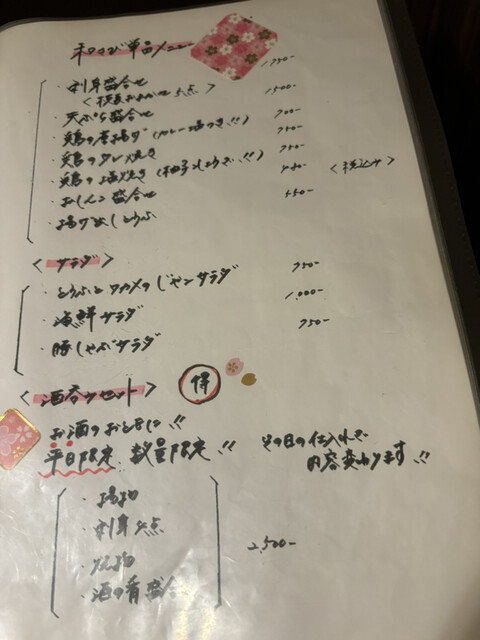 単品メニュー
・刺身盛合せ 1,750-
<板長おまかせ 5点>
・天ぷら盛合せ 1,500-
・鶏の唐揚げ 700-
・鶏のタレ焼き 750-
・鶏の塩焼き (柚子こしょうで!!) 750-
・おしんこ盛合せ 480- <税込み>
・揚げ出しとうふ 550-
<サラダ>
・とうふとワカメのじゃこサラダ 750-
・海鮮サラダ 1,000-
・豚しゃぶサラダ 750-
<酒呑みセット> 得
お酒のおともに!!
平日限定 数量限定!! その日の仕入れで
内容変わります!!
・揚物
・刺身 点
・酒の肴盛合
2,500-